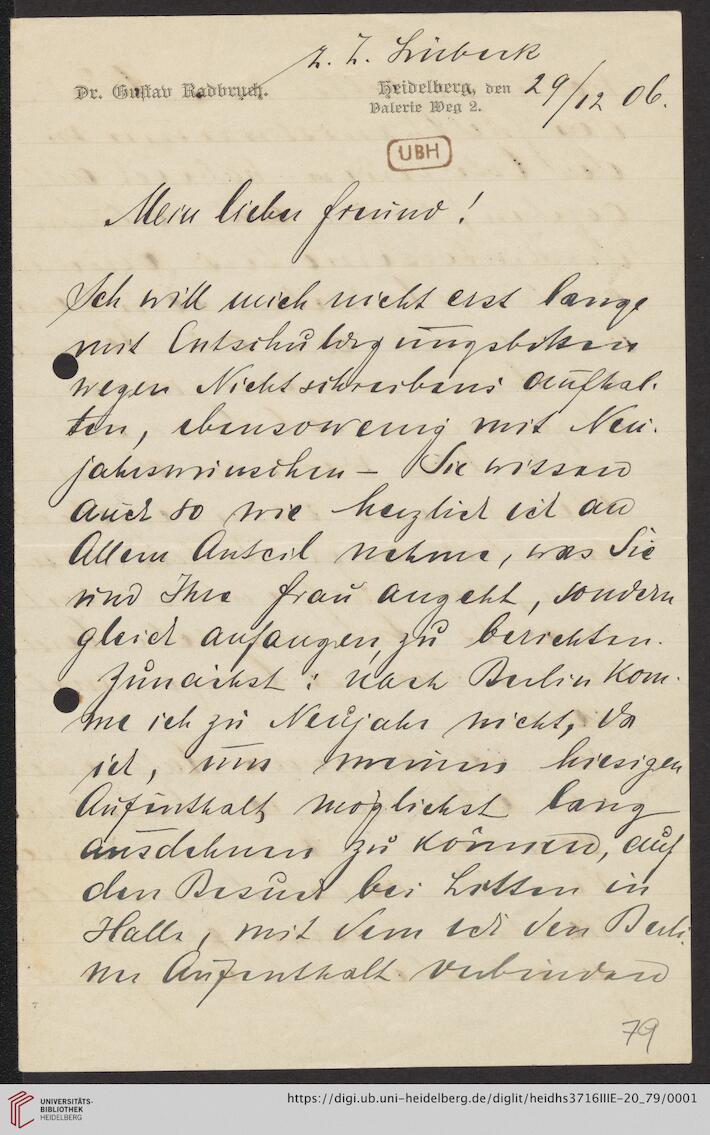 z. Z. Lübeck
Dr. Gustav Radbruch.
Heidelberg, den 29/12 06.
Valerie Weg 2.
UBH
Mein lieber Freund!
Ich will mich nicht erst lange
mit Entschuldigungsbitten
wegen Nichtschreibens aufhal-
ten, ebensowenig mit Neu-
jahrswünschen – Sie wissen
auch so wie herzlich ich an
Allem Anteil nehme, was Sie
und Ihre Frau angeht, sondern
gleich anfangen, zu berichten.
Zunächst: nach Berlin kom-
me ich zu Neujahr nicht, da
ich, um meinen hiesigen
Aufenthalt möglichst lang
ausdehnen zu können, auf
den Besuch bei Litten in
Halle, mit dem ich den Berli-
ner Aufenthalt verbinden
79
UNIVERSITÄTS-
BIBLIOTHEK
HEIDELBERG
https://digi.ub.uni-heidelberg.de/diglit/heidhs3716IIIE-20_79/0001